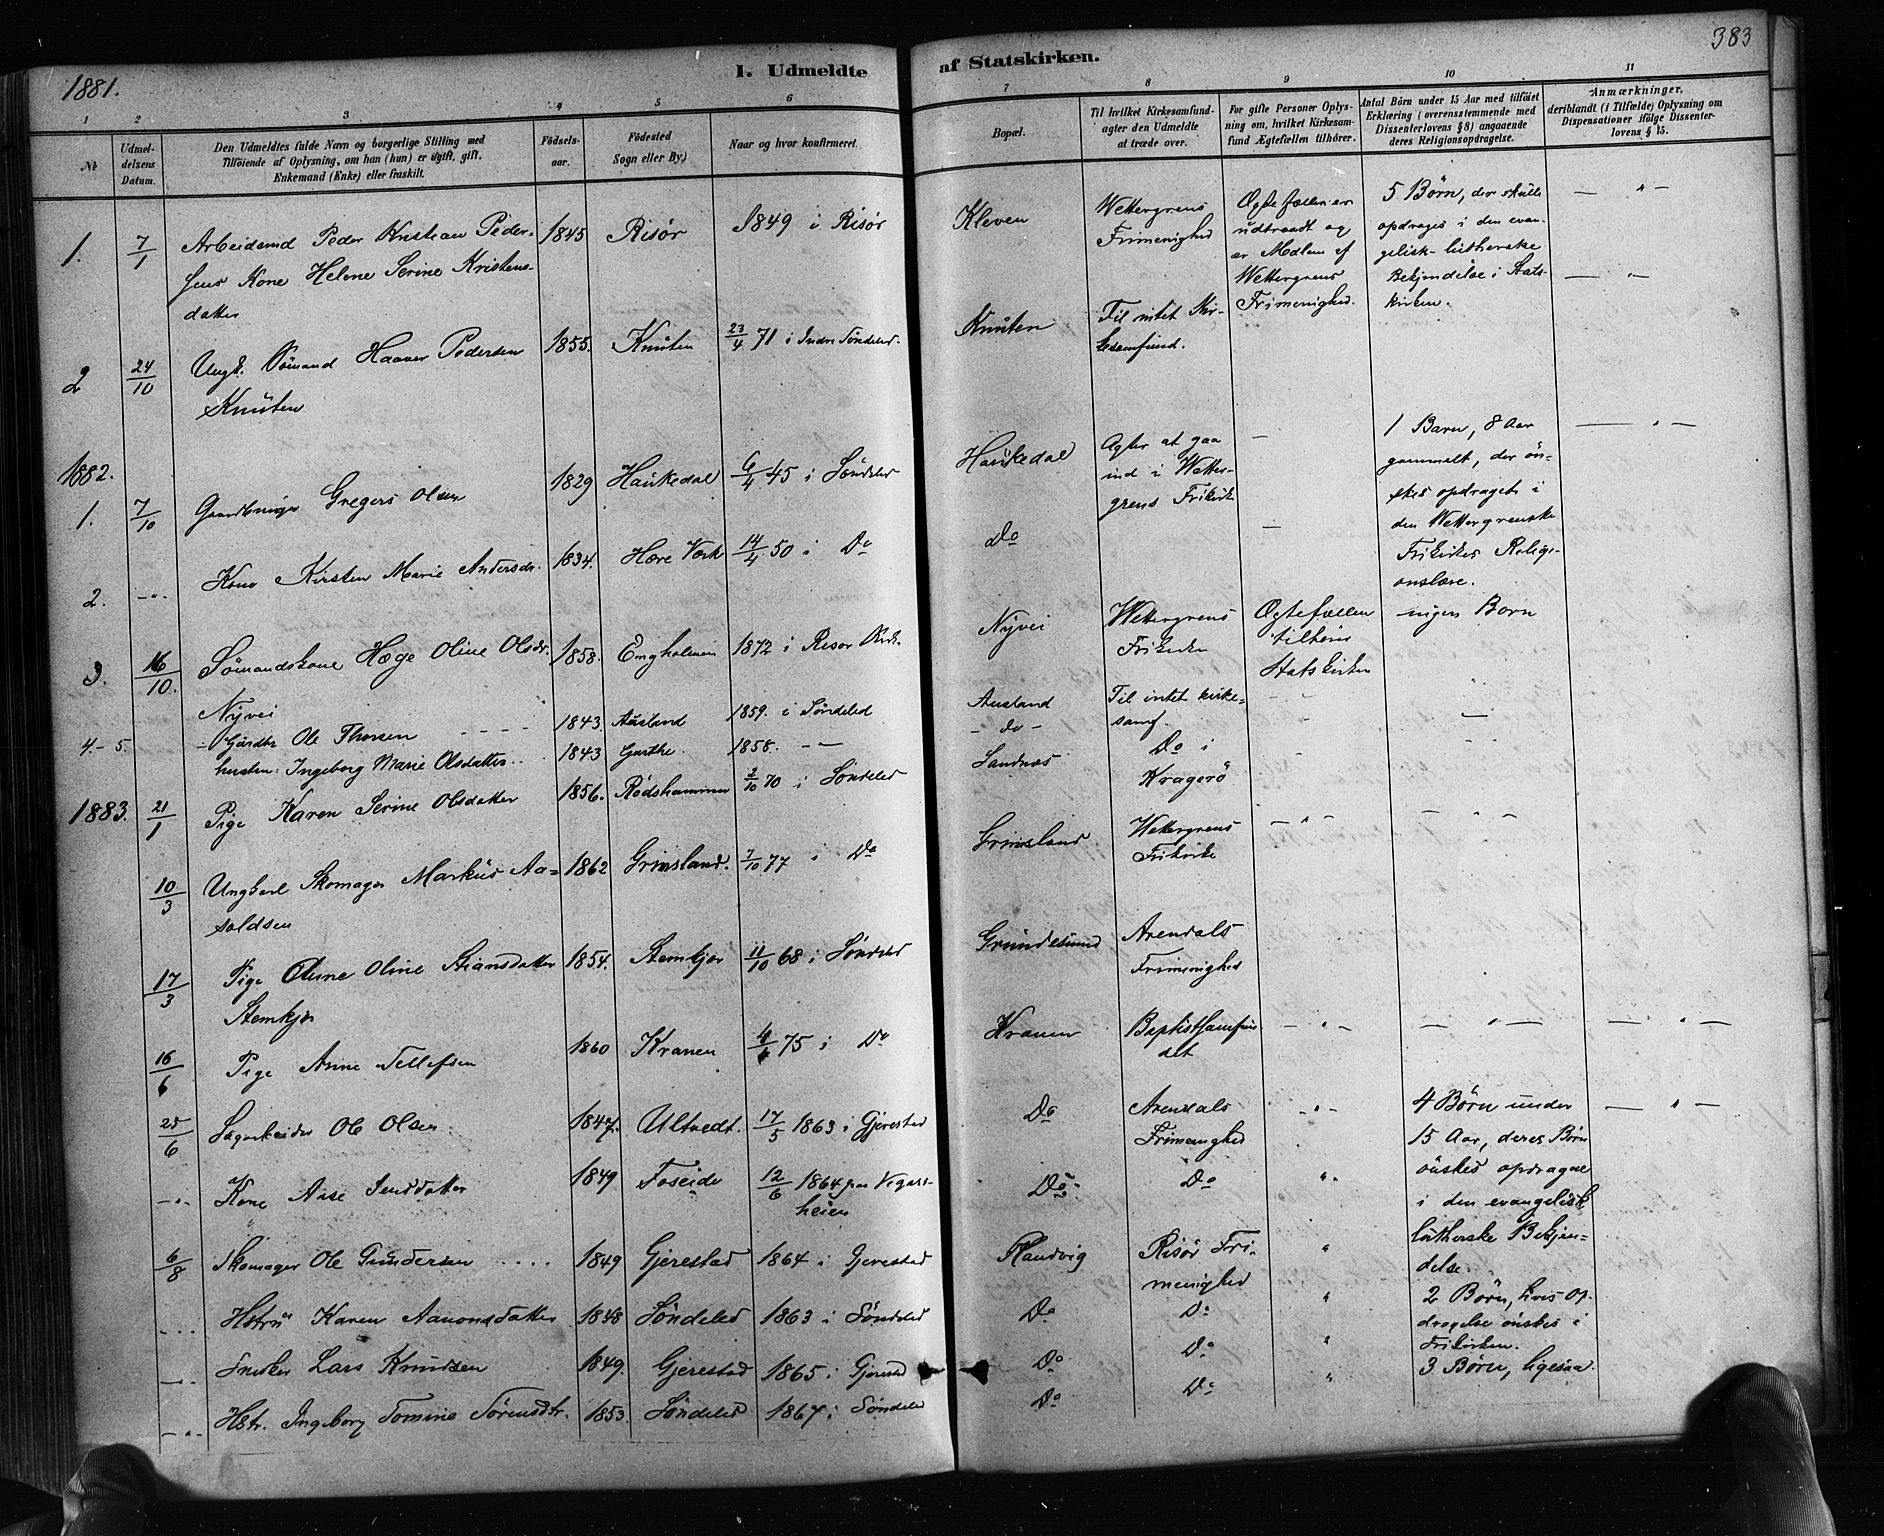 1881.
1. Udmeldte af Statskirken.
383
1 2 3 4 5 6 7 8 9 10 11
№
Udmel-
delsens
Datum.
Den Udmeldtes fulde Navn og borgerlige Stilling med
Tilføiende af Oplysning, om han (hun) er ugift, gift,
Enkemand (Enke) eller fraskilt.
Fødsels-
aar.
Fødested
Sogn eller By.)
Naar og hvor konfirmeret.
Bopæl.
Til hvilket Kirkesamfund-
agter den Udmeldte
at træde over.
For gifte Personer Oplys-
ning om, hvilket Kirkesam-
fund Ægtefællen tilhører.
Antal Børn under 15 Aar med tilføiet
Erklæring (overensstemmende med
Dissenterlovens § 8) angaaende
deres Religionsopdragelse.
Anmærkninger,
deriblandt (i Tilfælde) Oplysning om
Dispensationer ifølge Dissenter-
lovens § 15.
1. 7/1 Arbeidsmd Peder Kristian Peder- 1845 Risør 1849 i Risør
sens Kone Helene Serine Kristens-
datter
Kleven
Wettergrens
Frimenighed
Ogtefællen er
udtraadt og
er Medlem af
Wettergrens
Frimenighed.
5 Børn, der skulle
opdrages i den evan-
gelisk-lutherske
Bekjendelse i Stats-
kirken.
— " —
2 24/10 Ungk. Sømand Haaver Pedersen 1855. Knuten 23/4 71 i Indre Søndeled.
Knuten
Knuten
Til intet Kir-
kesamfund.
— " —
1882.
1. 7/10 Gaardbruger Gregers Olsen 1829 Haukedal 6/4 45 i Søndeled
Haukedal
Agter at gaa
ind i Wetter-
grens Frikirke
—
1 Barn, 8 Aar
gammelt, der øn-
skes opdraget i
den Wettergrenske
Frikirkes Religi-
onslære.
— " —
2. -"- Kone Kirsten Marie Andersdr. 1834. Høre Værk 14/4 50 i Do
Do
—
3. 16/10. Sømandskone Hæge Oline Olsdr. 1858. Engholmen 1872 i Risør
Nyvei
Nyvei
Wettergrens
Frikirke
Ogtefællen
tilhører
Statskirken
ingen Børn
4.-5. Gårdbr Ole Thorsen 1843. Ausland 1859. i Søndeled
Ausland
Til intet kirke-
samf.
hustru: Ingeborg Marie Olsdatter. 1843 Garthe. 1858. -"-
- do -
1883. 21/1 Pige Karen Serine Olsdatter 1856. Rødshammer 2/10 70 i Søndeled
Sandnæs
Do i
Kragerö
10/3 Ungkarl Skomager Markus Aa- 1862 Grimsland. 7/10 77 i Do
saldsen
Grimsland
Wettergrens
Frikirke
- " -
- " -
17/3 Pige Anne Oline Stiansdatter 1854. Stemkjær 11/10 68 i Søndeled
Stemkjær
Grundesund
Arendals
Frimenighed
16/6 Pige Anne Tellefsen 1860 Kranen 4/6 75 i Do
Kranen
Baptistsamfun-
det
- " -
— " —
— " —
25/6 Sagarbeider Ole Olsen 1847. Ultvedt. 17/5 1863 i Gjerestad
Do
Arendals
Frimenighed
- " -
4 Børn under
15 Aar, deres Børn
ønskes opdragne
i den evangelisk
lutherske Bekjen-
delse.
— " —
-"- Kone Aase Jensdatter 1849 Foseide 12/6 1864 paa Vegars-
heien
Do
Do
"
6/8 Skomager Ole Gundersen 1849 Gjerestad 1864 i Gjerestad
Randvig
Risør Fri-
menighed
"
2 Børn, hvis Op-
dragelse ønskes i
Frikirken.
Hstru Karen Aanonsdatter 1848 Søndeled 1863 i Søndeled
Do
Do
"
-"- Snedker Lars Knudsen 1849. Gjerestad 1865 i Gjerestad
Do
Do
"
3 Børn, ligesaa.
-"- Hstr. Ingeborg Tomine Sørensdtr. 1853. Søndeled 1867 i Søndeled
Do
Do
"